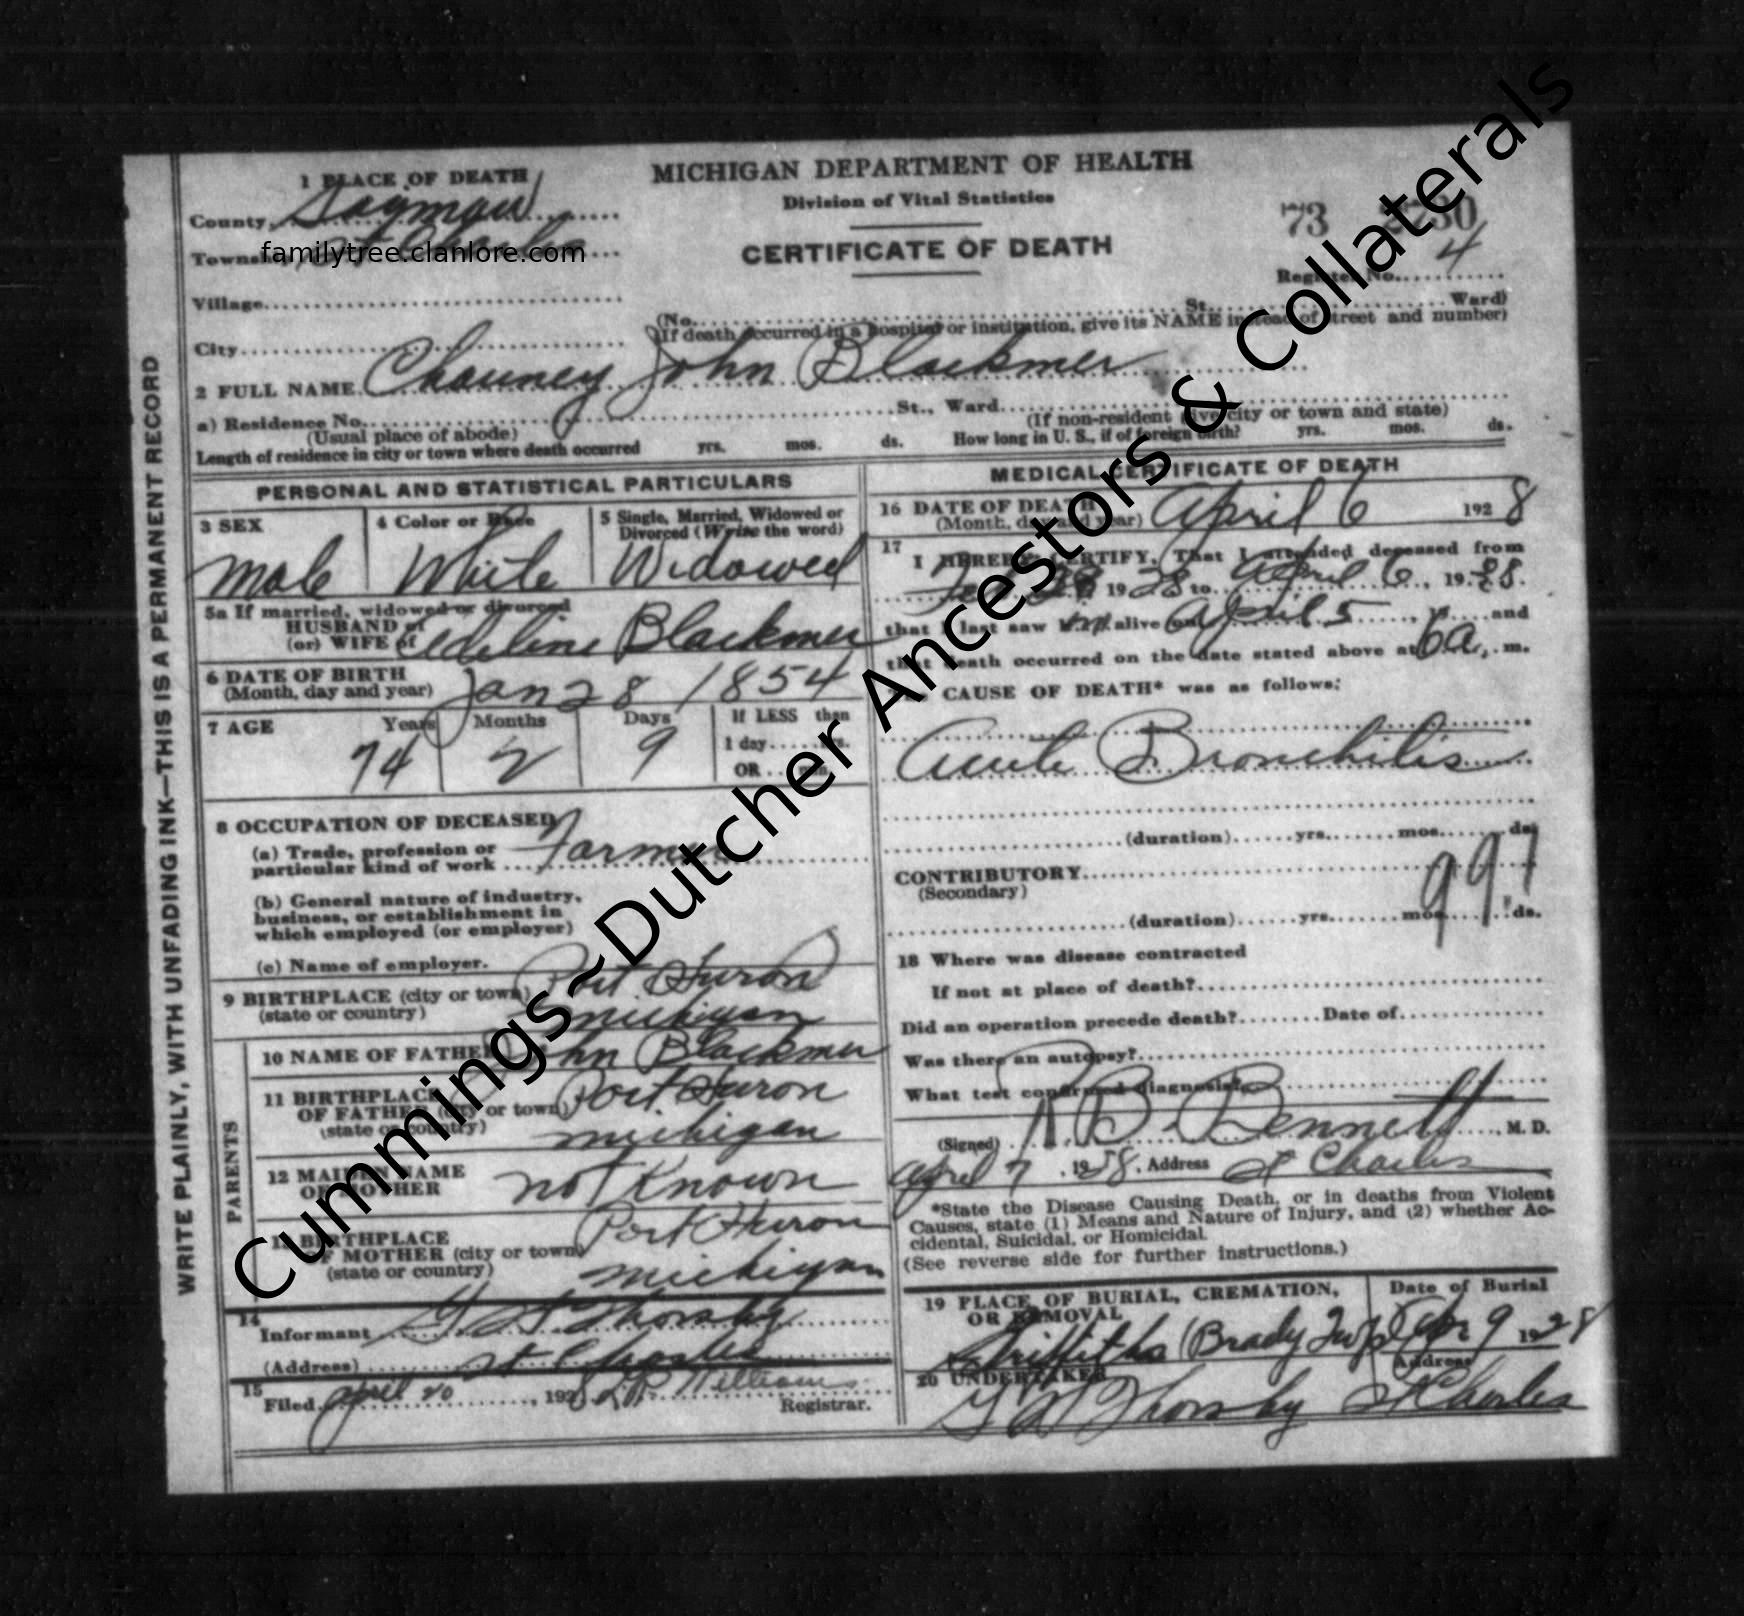 MICHIGAN DEPARTMENT OF HEALTH
Division of Vital Statistics
CERTIFICATE OF DEATH
73 2730
Register No. 4
1 PLACE OF DEATH
County Saginaw
Township St Charles
familytree.clanlore.com
Village
City
(No. St. Ward)
(If death occurred in a hospital or institution, give its NAME instead of street and number)
2 FULL NAME Chauncy John Blackmer
a) Residence No. St., Ward
(Usual place of abode) (If non-resident give city or town and state)
Length of residence in city or town where death occurred yrs. mos. ds. How long in U. S., if of foreign birth? yrs. mos. ds.
WRITE PLAINLY, WITH UNFADING INK—THIS IS A PERMANENT RECORD
PERSONAL AND STATISTICAL PARTICULARS
3 SEX 4 Color or Race 5 Single, Married, Widowed or
Divorced (Write the word)
Male White Widowed
5a If married, widowed or divorced
HUSBAND of
(or) WIFE of Adeline Blackmer
6 DATE OF BIRTH
(Month, day and year) Jan 28 1854
7 AGE Years Months Days If LESS than
1 day hrs.
OR min.
74 2 9
8 OCCUPATION OF DECEASED
(a) Trade, profession or
particular kind of work Farmer
(b) General nature of industry,
business, or establishment in
which employed (or employer)
(c) Name of employer.
9 BIRTHPLACE (city or town) Port Huron
(state or country) Michigan
PARENTS
10 NAME OF FATHER John Blackmer
11 BIRTHPLACE
OF FATHER (city or town) Port Huron
(state or country) Michigan
12 MAIDEN NAME
OF MOTHER not Known
13 BIRTHPLACE
OF MOTHER (city or town) Port Huron
(state or country) Michigan
14
Informant Thorsby
(Address) St Charles
15
Filed april 20, 1928 Williams
Registrar.
MEDICAL CERTIFICATE OF DEATH
16 DATE OF DEATH
(Month, day and year) April 6 1928
17
I HEREBY CERTIFY, That I attended deceased from
Feb 1928 to April 6, 1928
that I last saw him alive on April 5, 19 and
that death occurred on the date stated above at 6 a. m.
CAUSE OF DEATH* was as follows:
Acute Bronchitis
(duration) yrs. mos. ds.
CONTRIBUTORY
(Secondary)
991
(duration) yrs. mos. ds.
18 Where was disease contracted
If not at place of death?
Did an operation precede death? Date of
Was there an autopsy?
What test confirmed diagnosis?
(Signed) B. Bennett M. D.
April 7, 1928, Address St Charles
*State the Disease Causing Death, or in deaths from Violent
Causes, state (1) Means and Nature of Injury, and (2) whether Ac-
cidental, Suicidal, or Homicidal.
(See reverse side for further instructions.)
19 PLACE OF BURIAL, CREMATION, Date of Burial
OR REMOVAL
Griffiths (Brady Twp) Apr 9 1928
20 UNDERTAKER Address
Thorsby St Charles
Cummings~Dutcher Ancestors & Collaterals